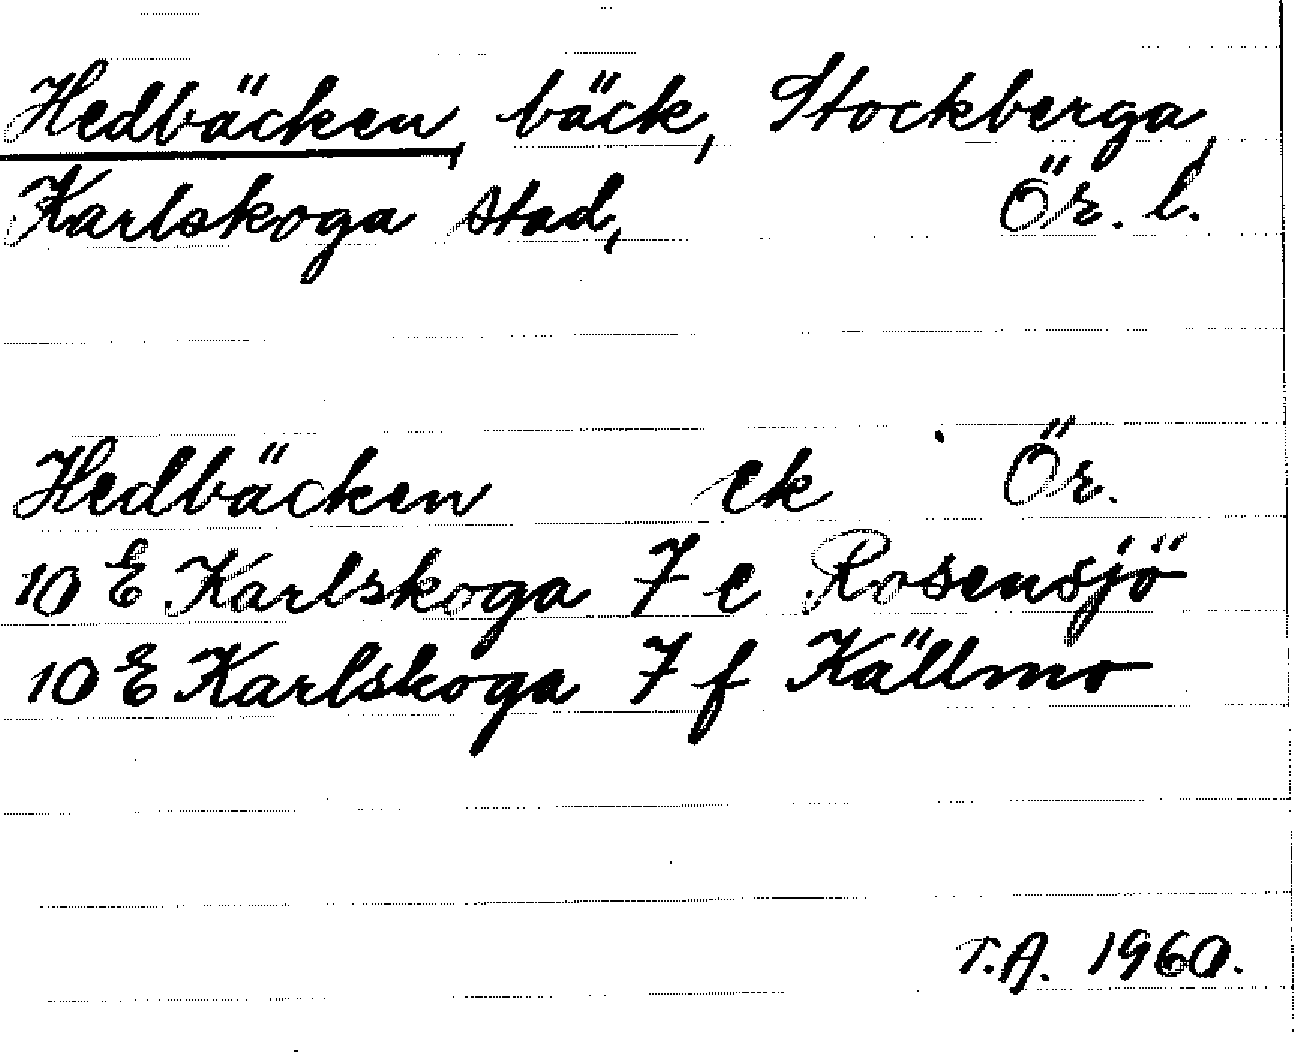 Hedbäcken, bäck, Stockberga,
Karlskoga stad, Ör. l.
Hedbäcken ek Ör.
10 E Karlskoga 7 e Rosensjö
10 E Karlskoga 7 f Källmo
T.A. 1960.